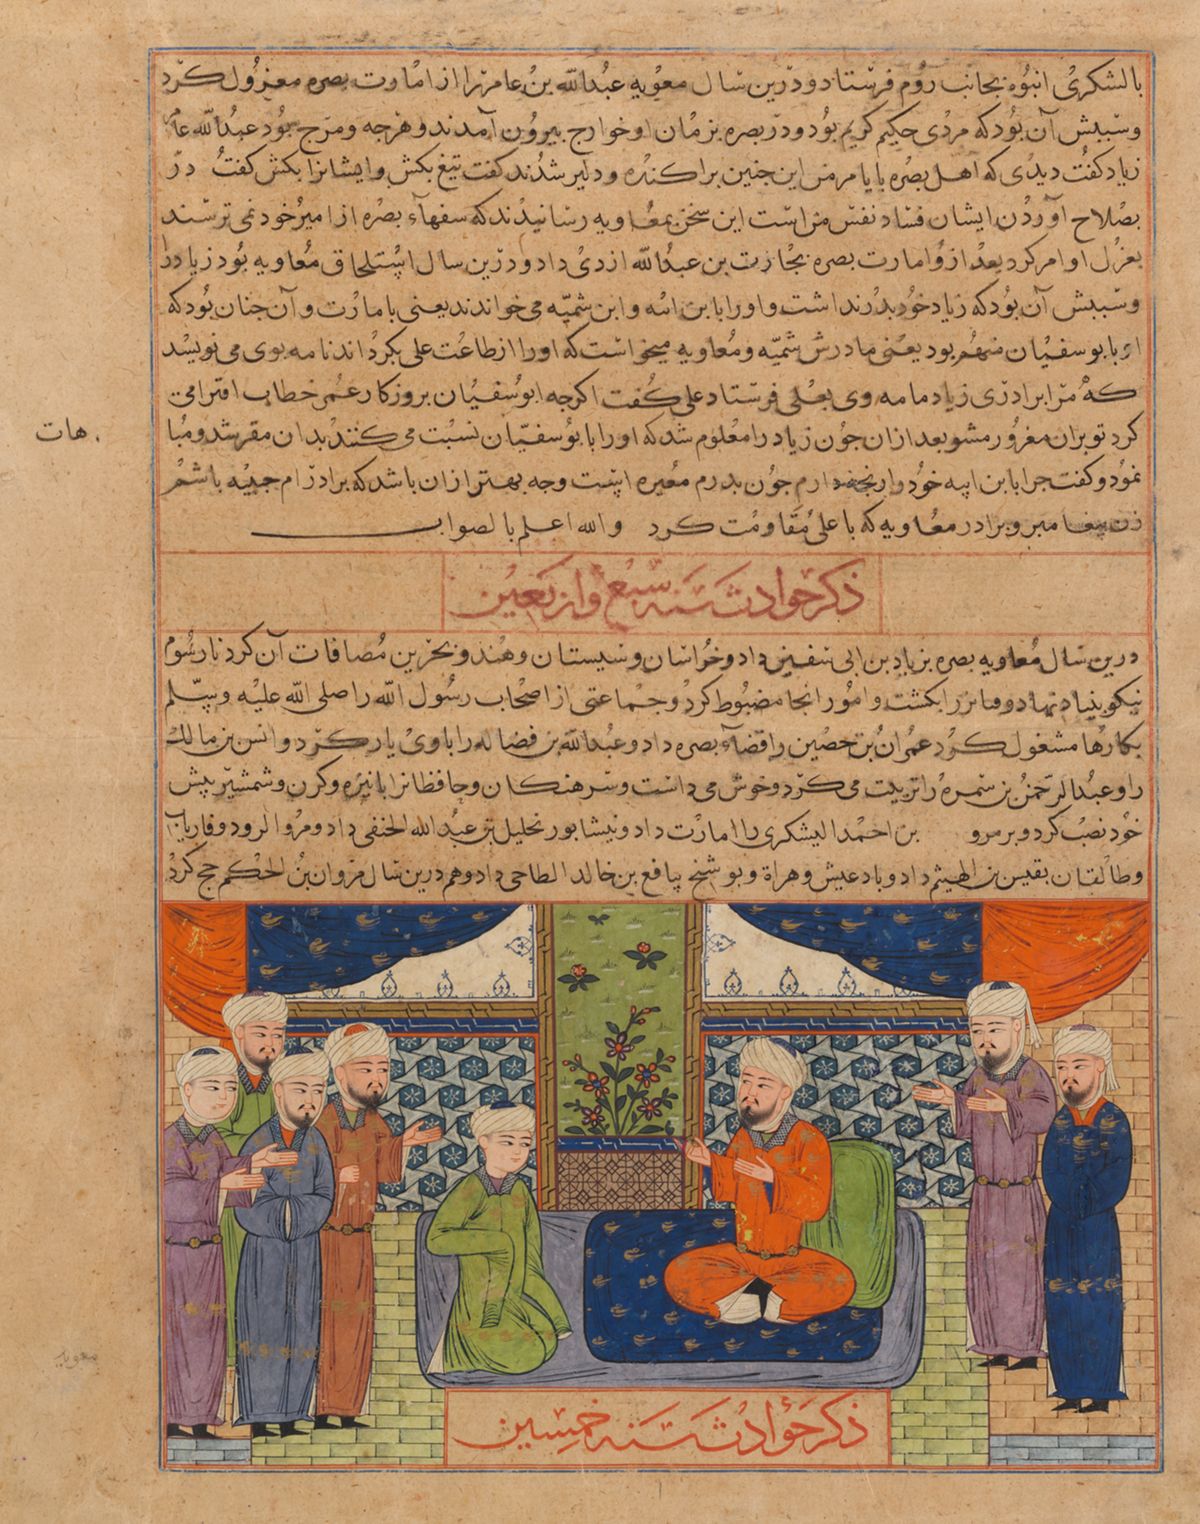 بالشکری انبوه بجانب روم فرستاد و درین سال معویه عبدالله بن عامر را از امارت بصره معزول کرد
وسببش آن بود که مردی حکیم کریم بود و در بصره بزمان او خوارج بیرون آمدند و هرجه ومرج بود عبدالله عامر
زیاد کفت دیدی که اهل بصره با این جنین براکنده و دلیر شدند کفت تیغ بکش وایشانرا بکش کفت در
بصلاح آوردن ایشان فساد نفس من است این سخن بمعاویه رسانیدند که سفهاء بصره از امیر خود نمی ترسند
بعزل او امر کرد بعد ازو امارت بصره بحارث بن عبدالله ازدی داد و درین سال استلحاق معاویه بود زیاد را
وسببش آن بود که زیاد خود بدر نداشت واورا بابن امه وابن سمیه می خواندند یعنی با مادرت و آن جنان بود که
او با بوسفیان متهم بود یعنی مادرش سمیه ومعاویه میخواست که اورا از طاعت علی بکرداند نامه بوی می نویسد
که مرا برادری زیاد نامه وی بعلی فرستاد علی کفت اکرجه ابوسفیان بروزکار عمر خطاب اقرامی
کرد تو بران مغرور مشو بعد ازان جون زیاد را معلوم شد که اورا با بوسفیان نسبت می کنند بدان مقر شد و مبا
هات
نمود و کفت جرا بابن ابیه خود وا دارم جون بدرم معیره است وجه بهتر ازان باشد که برادر ام حبیبه باشم
زن پیغامبر و برادر معاویه که با علی مقاومت کرد والله اعلم بالصواب
ذکر حوادث سنه سبع واربعین
درین سال معاویه بصره بزیاد بن ابی سفین داد و خراسان وسیستان وهند و بحرین مضافات آن کرد تا رسوم
نیکو بنیاد نهاد و را بکشت وامور انجا مضبوط کرد و جماعتی از اصحاب رسول الله را صلی الله علیه وسلم
بکارها مشغول کرد عمران بن حصین را قضاء بصره داد و عبدالله بن فضاله را با وی یار کرد و انس بن مالک
را و عبدالرحمن بن سمره را تربیت می کرد و خوش می داشت و سرهنکان و حافظانرا با نیزه و کرز و شمشیر پیش
خود نصب کرد و بر مرو بن احمد الیشکری را امارت داد و نیشابور بخلیل بن عبدالله الحنفی داد و مرو الرود و فاریاب
وطالقان بقیس بن الهیثم داد و بادعیش و هراة وبوشنج بنافع بن خالد الطاحی داد و هم درین سال مروان بن الحکم حج کرد
معویه
ذکر حوادث سنه خمسین